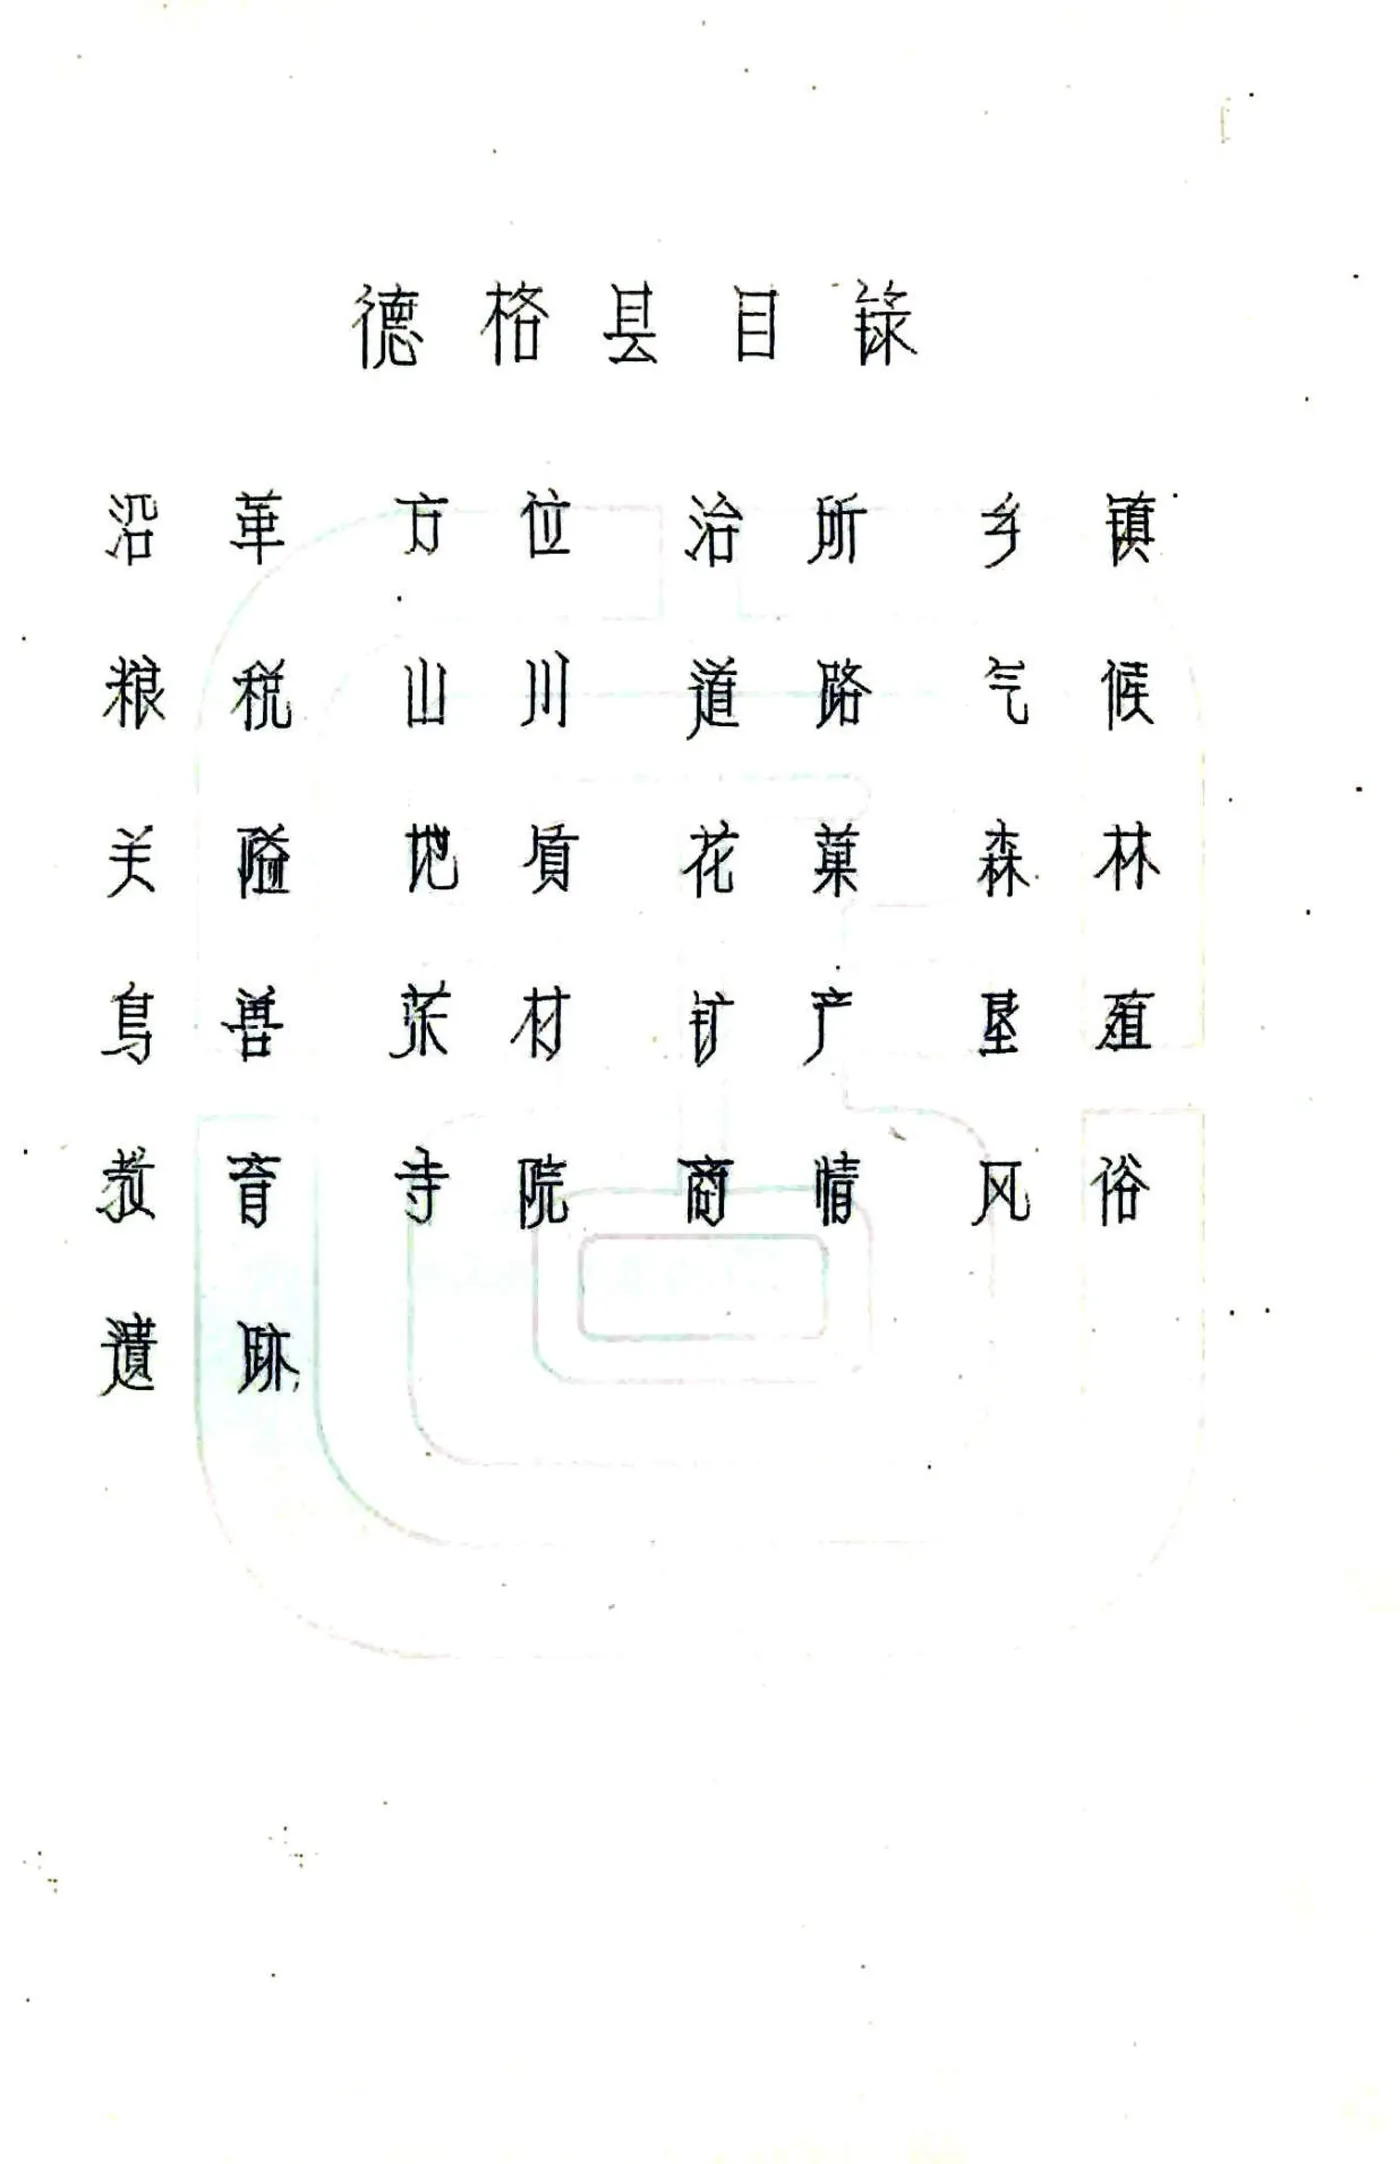 德格县目録
沿革 方位 治所 乡镇
粮税 山川 道路 气候
关隘 地质 花菓 森林
鸟兽 茶材 矿产 垦殖
教育 寺院 商情 风俗
遗跡